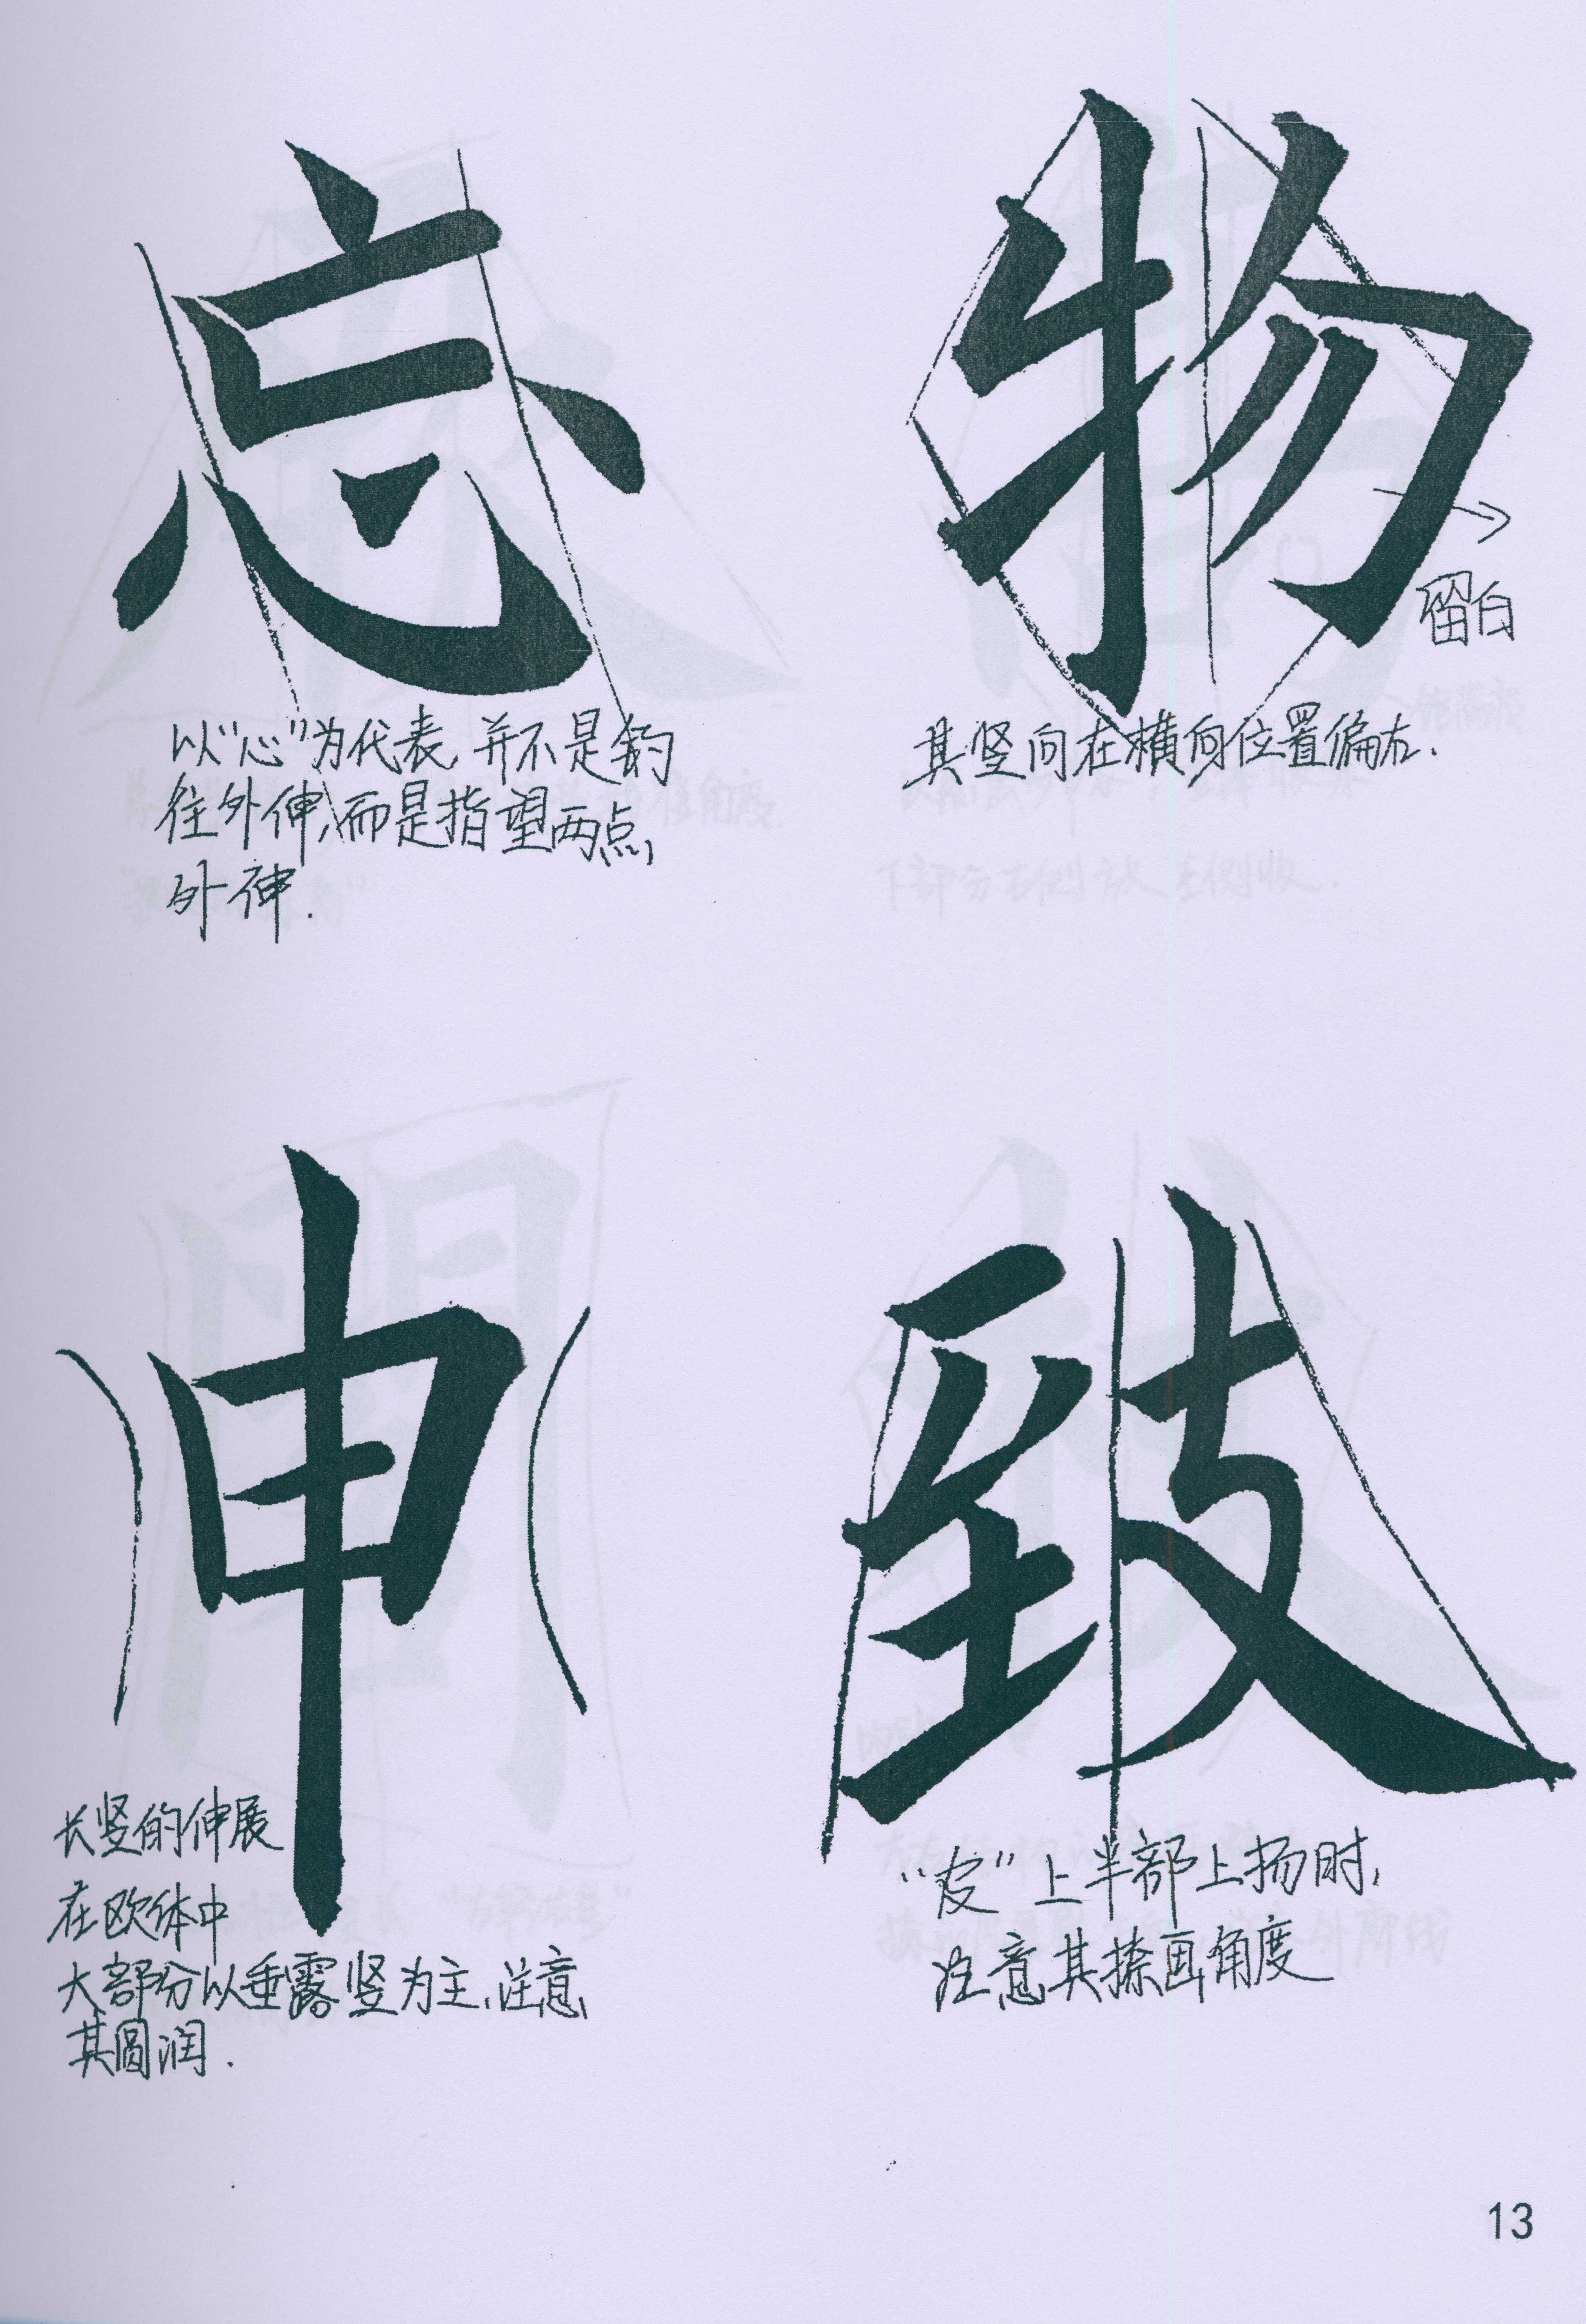 忘
物
留白
以“心”为代表,并不是钩
往外伸,而是指望两点,
外伸.
其竖向在横向位置偏右.
申
致
长竖的伸展
在欧体中
大部分以垂露竖为主,注意
其圆润.
“皮”上半部上扬时,
注意其捺画角度
13